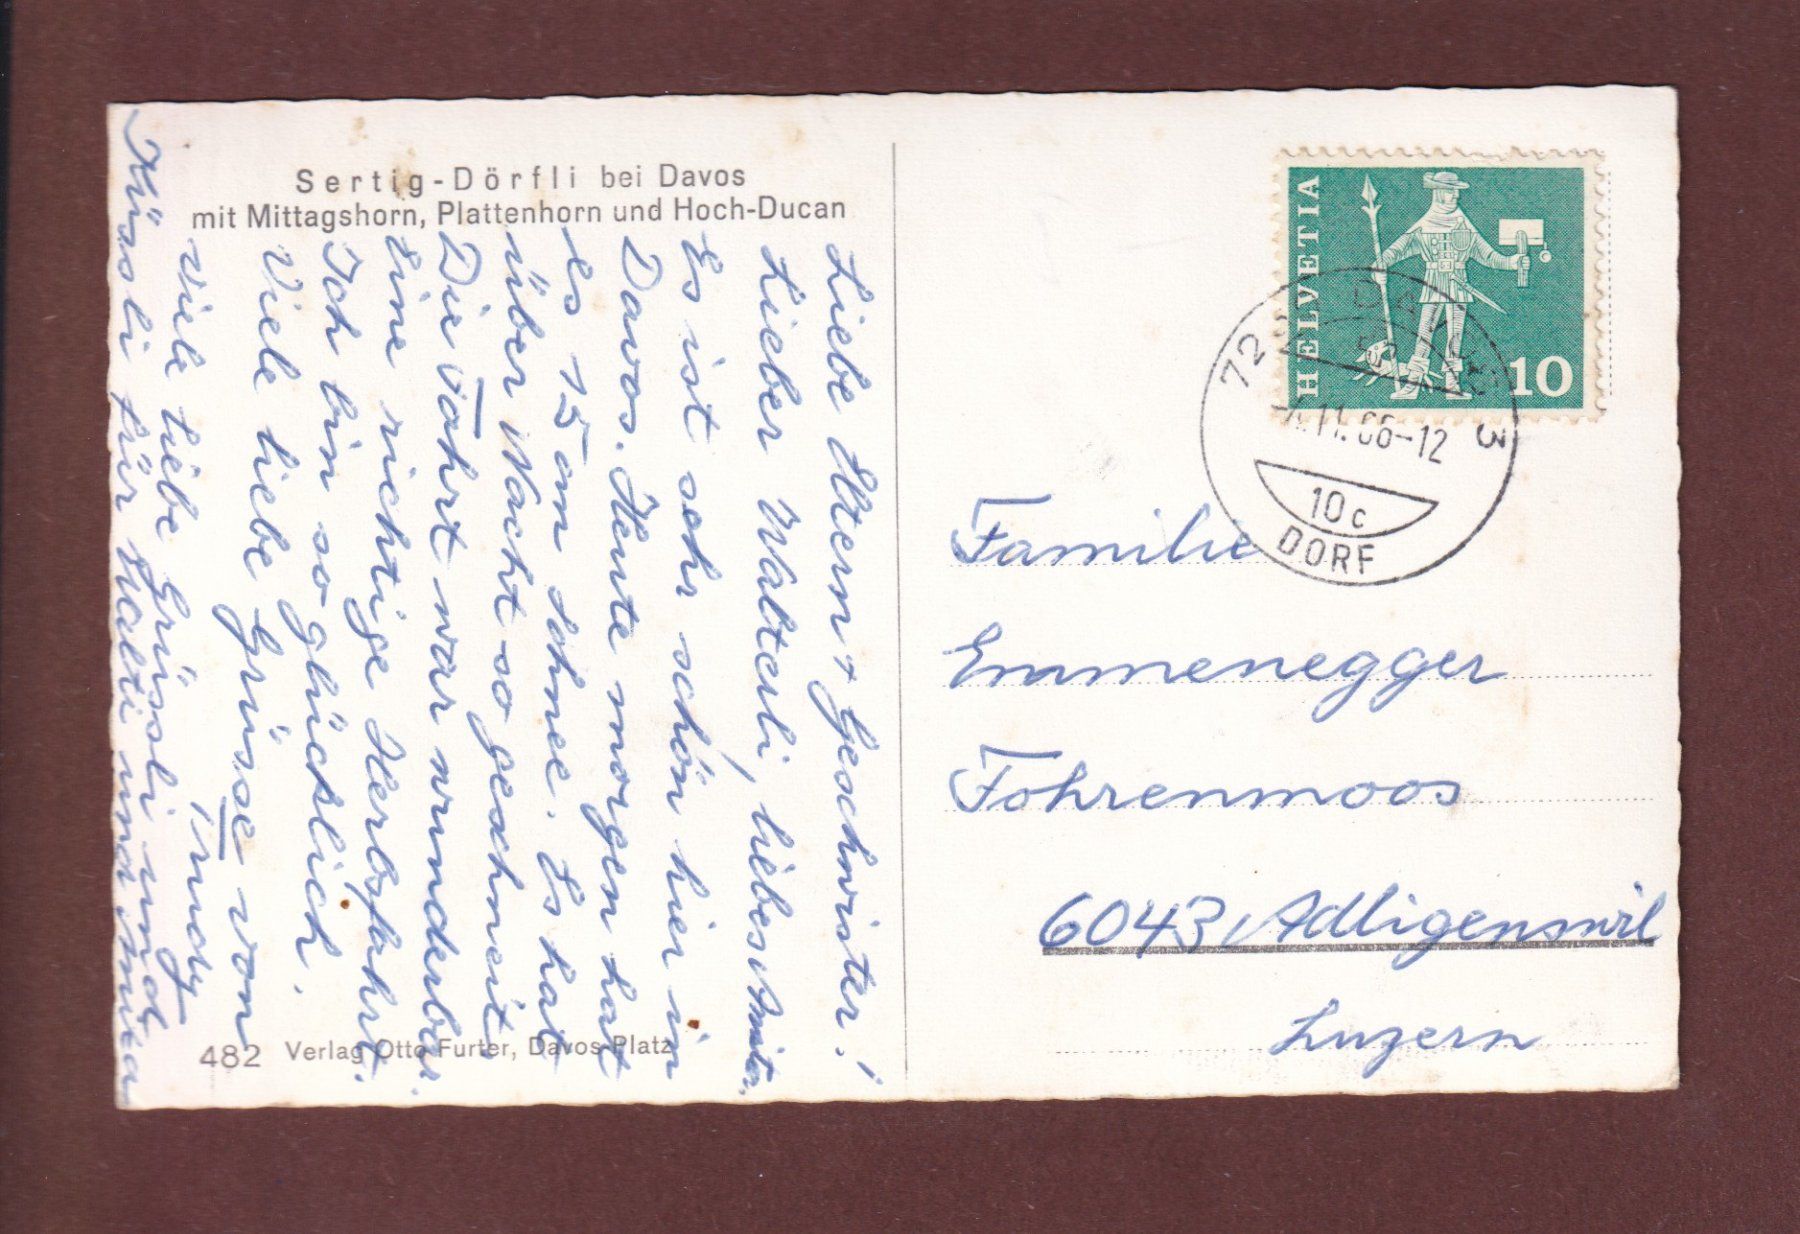 Sertig-Dörfli bei Davos
mit Mittagshorn, Plattenhorn und Hoch-Ducan
Liebe Eltern + Geschwister!
Lieber Walterli, liebes Anita.
Es ist sehr schön hier in
Davos. Heute morgen hat
es 15 cm Schnee. Es hat
über Nacht so geschneit.
Die Fahrt war wunderbar.
Eine richtige Herbstfahrt.
Ich bin so glücklich.
Viele liebe Grüsse von
Viele liebe Grüssli und
Küssli für Walti und Anita
482 Verlag Otto Furter, Davos-Platz
HELVETIA
10
DAVOS
11.66-12
3
10c
DORF
Familie
Emmenegger
Fohrenmoos
6043 Adligenswil
Luzern